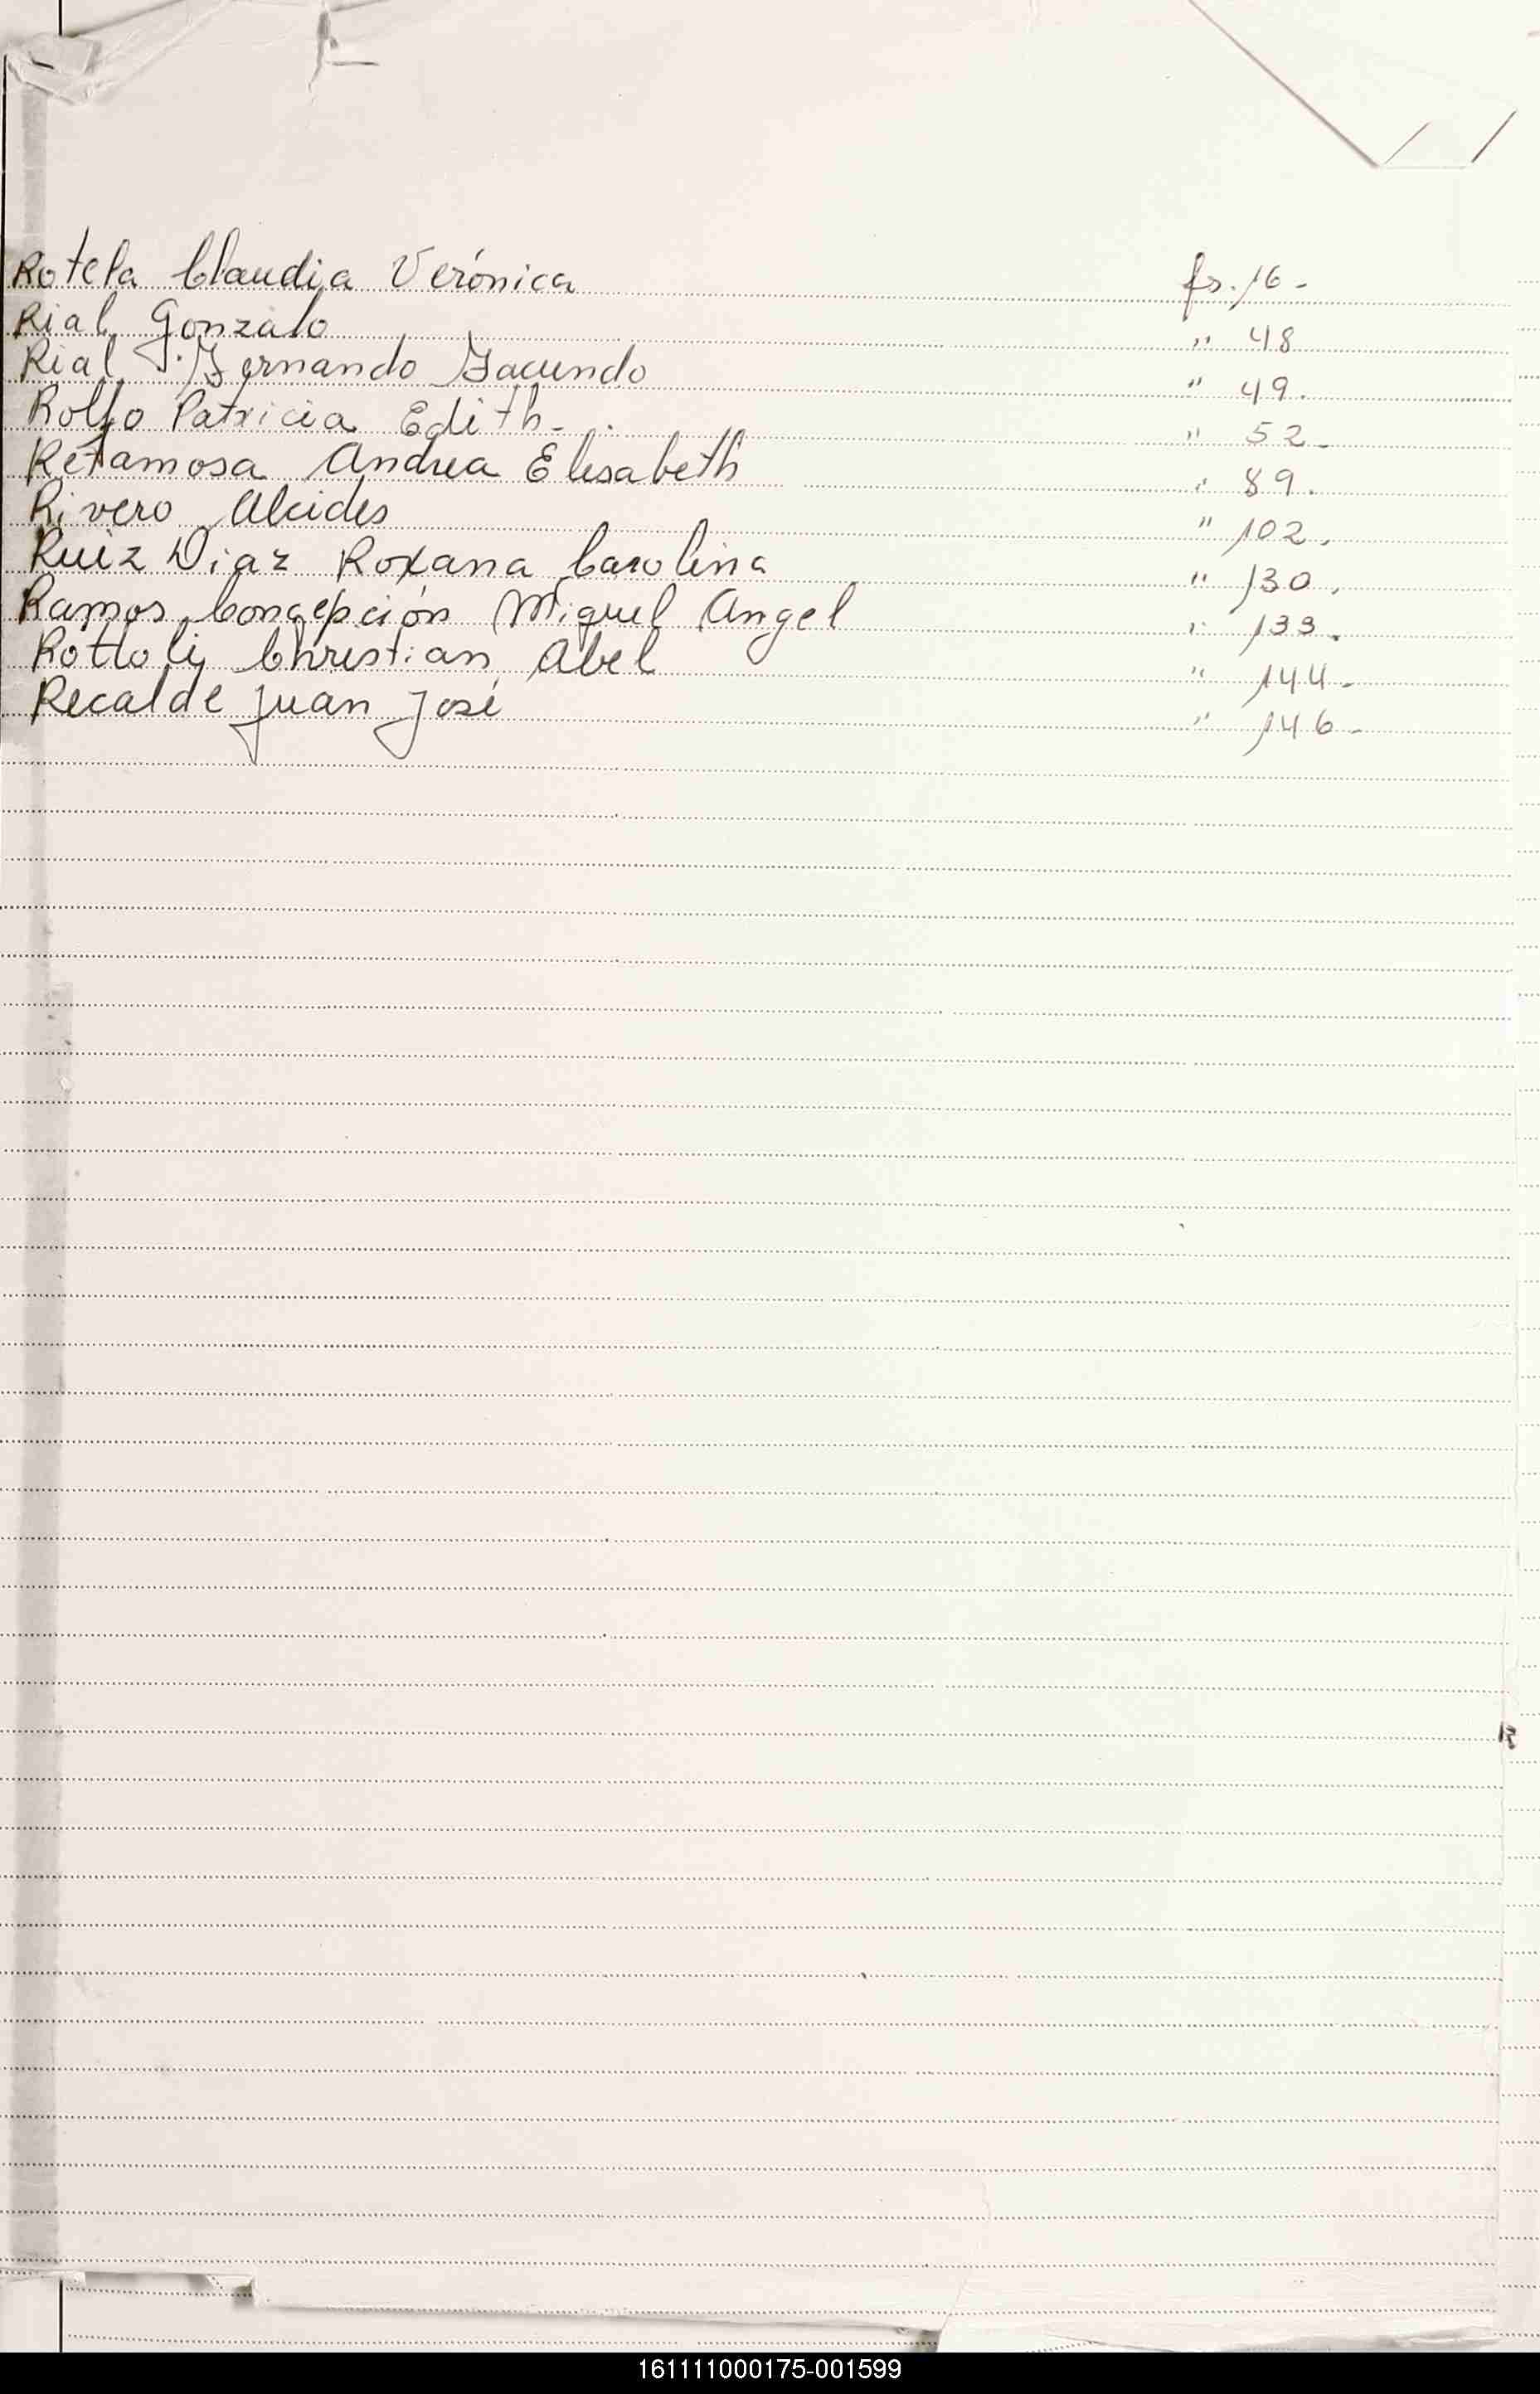 Rotela Claudia Verónica fs. 16-
Rial Gonzalo " 48
Rial Fernando Facundo " 49.
Rolfo Patricia Edith- " 52-
Retamosa Andrea Elisabeth " 89.
Rivero Alcides " 102.
Ruiz Diaz Roxana Carolina " 130.
Ramos Concepción Miguel Angel " 133.
Rottoly Christian Abel " 144-
Recalde Juan José " 146-
161111000175-001599